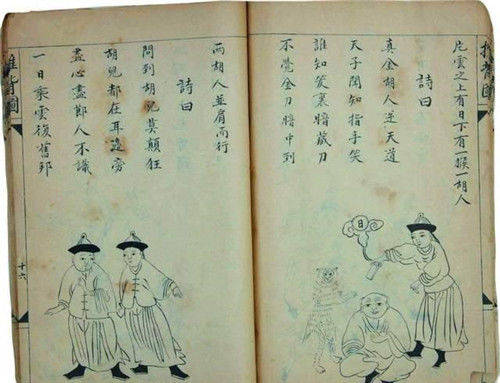 推背圖
片雲之上有日下有一猴一胡人
詩曰
真金胡人逆天道
天子聞知指手笑
誰知袋裏暗藏刀
不覺金刀暗中到
日
兩胡人並肩而行
詩曰
問到胡兒莫顛狂
胡兒都在耳邊旁
盡心盡鄭人不識
一日乘雲復舊邦
推背圖
十六